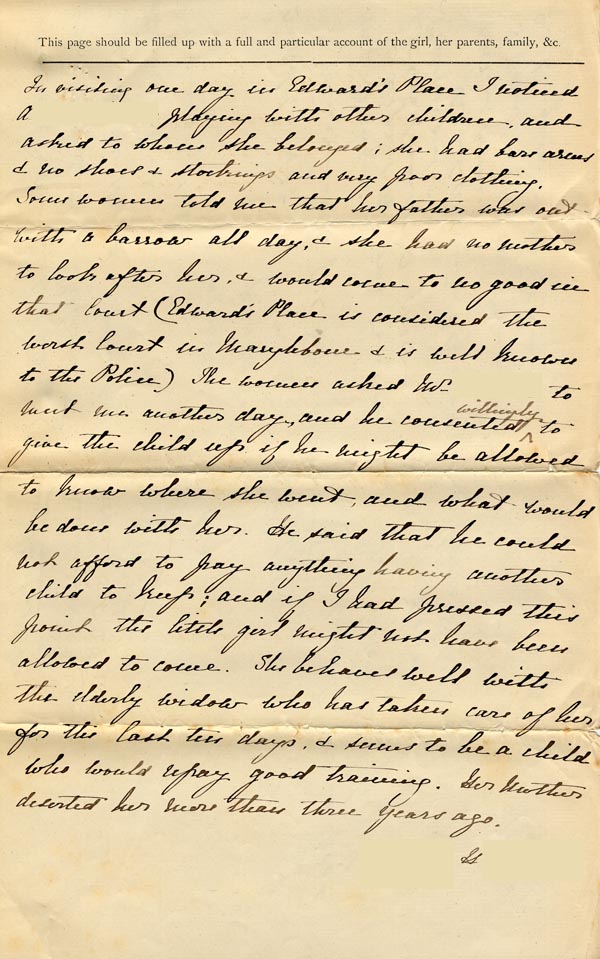 This page should be filled up with a full and particular account of the girl, her parents, family, &c.
In visiting one day in Edward's Place I noticed
A playing with other children, and
asked to whom she belonged; she had bare arms
& no shoes & stockings and very poor clothing.
Some women told me that her father was out
with a barrow all day, & she had no mother
to look after her, & would come to no good in
that Court (Edward's Place is considered the
worst Court in Marylebone & is well known
to the Police) The women asked Mr. to
meet me another day, and he consented willingly to
give the child up if he might be allowed
to know where she went, and what would
be done with her. He said that he could
not afford to pay anything having another
child to keep; and if I had pressed this
point the little girl might not have been
allowed to come. She behaves well with
the elderly widow who has taken care of her
for the last ten days, & seems to be a child
who would repay good training. Her Mother
deserted her more than three years ago.